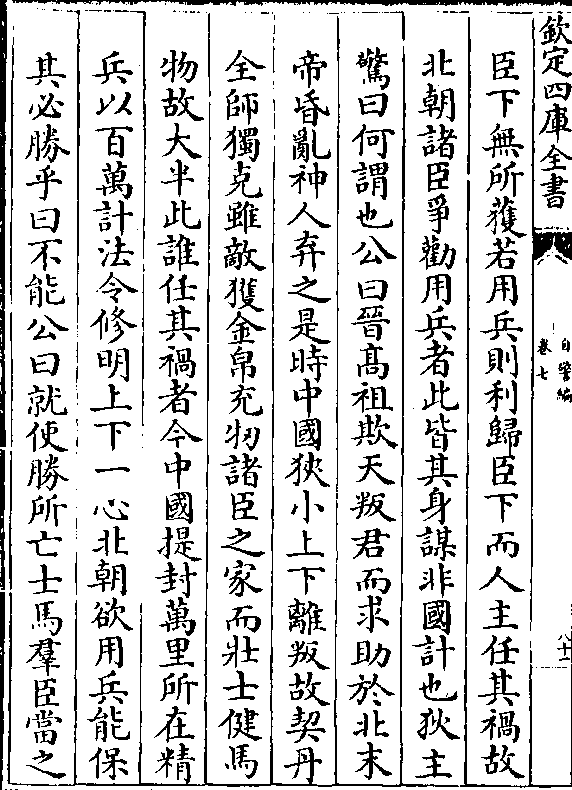 欽定四庫全書
自警編
卷七
八十一
臣下無所獲若用兵則利歸臣下而人主任其禍故
北朝諸臣爭勸用兵者此皆其身謀非國計也狄主
驚曰何謂也公曰晉髙祖欺天叛君而求助於北末
帝昏亂神人弃之是時中國狹小上下離叛故契丹
全師獨克雖敵獲金帛充牣諸臣之家而壯士健馬
物故大半此誰任其禍者今中國提封萬里所在精
兵以百萬計法令修明上下一心北朝欲用兵能保
其必勝乎曰不能公曰就使勝所亡士馬羣臣當之